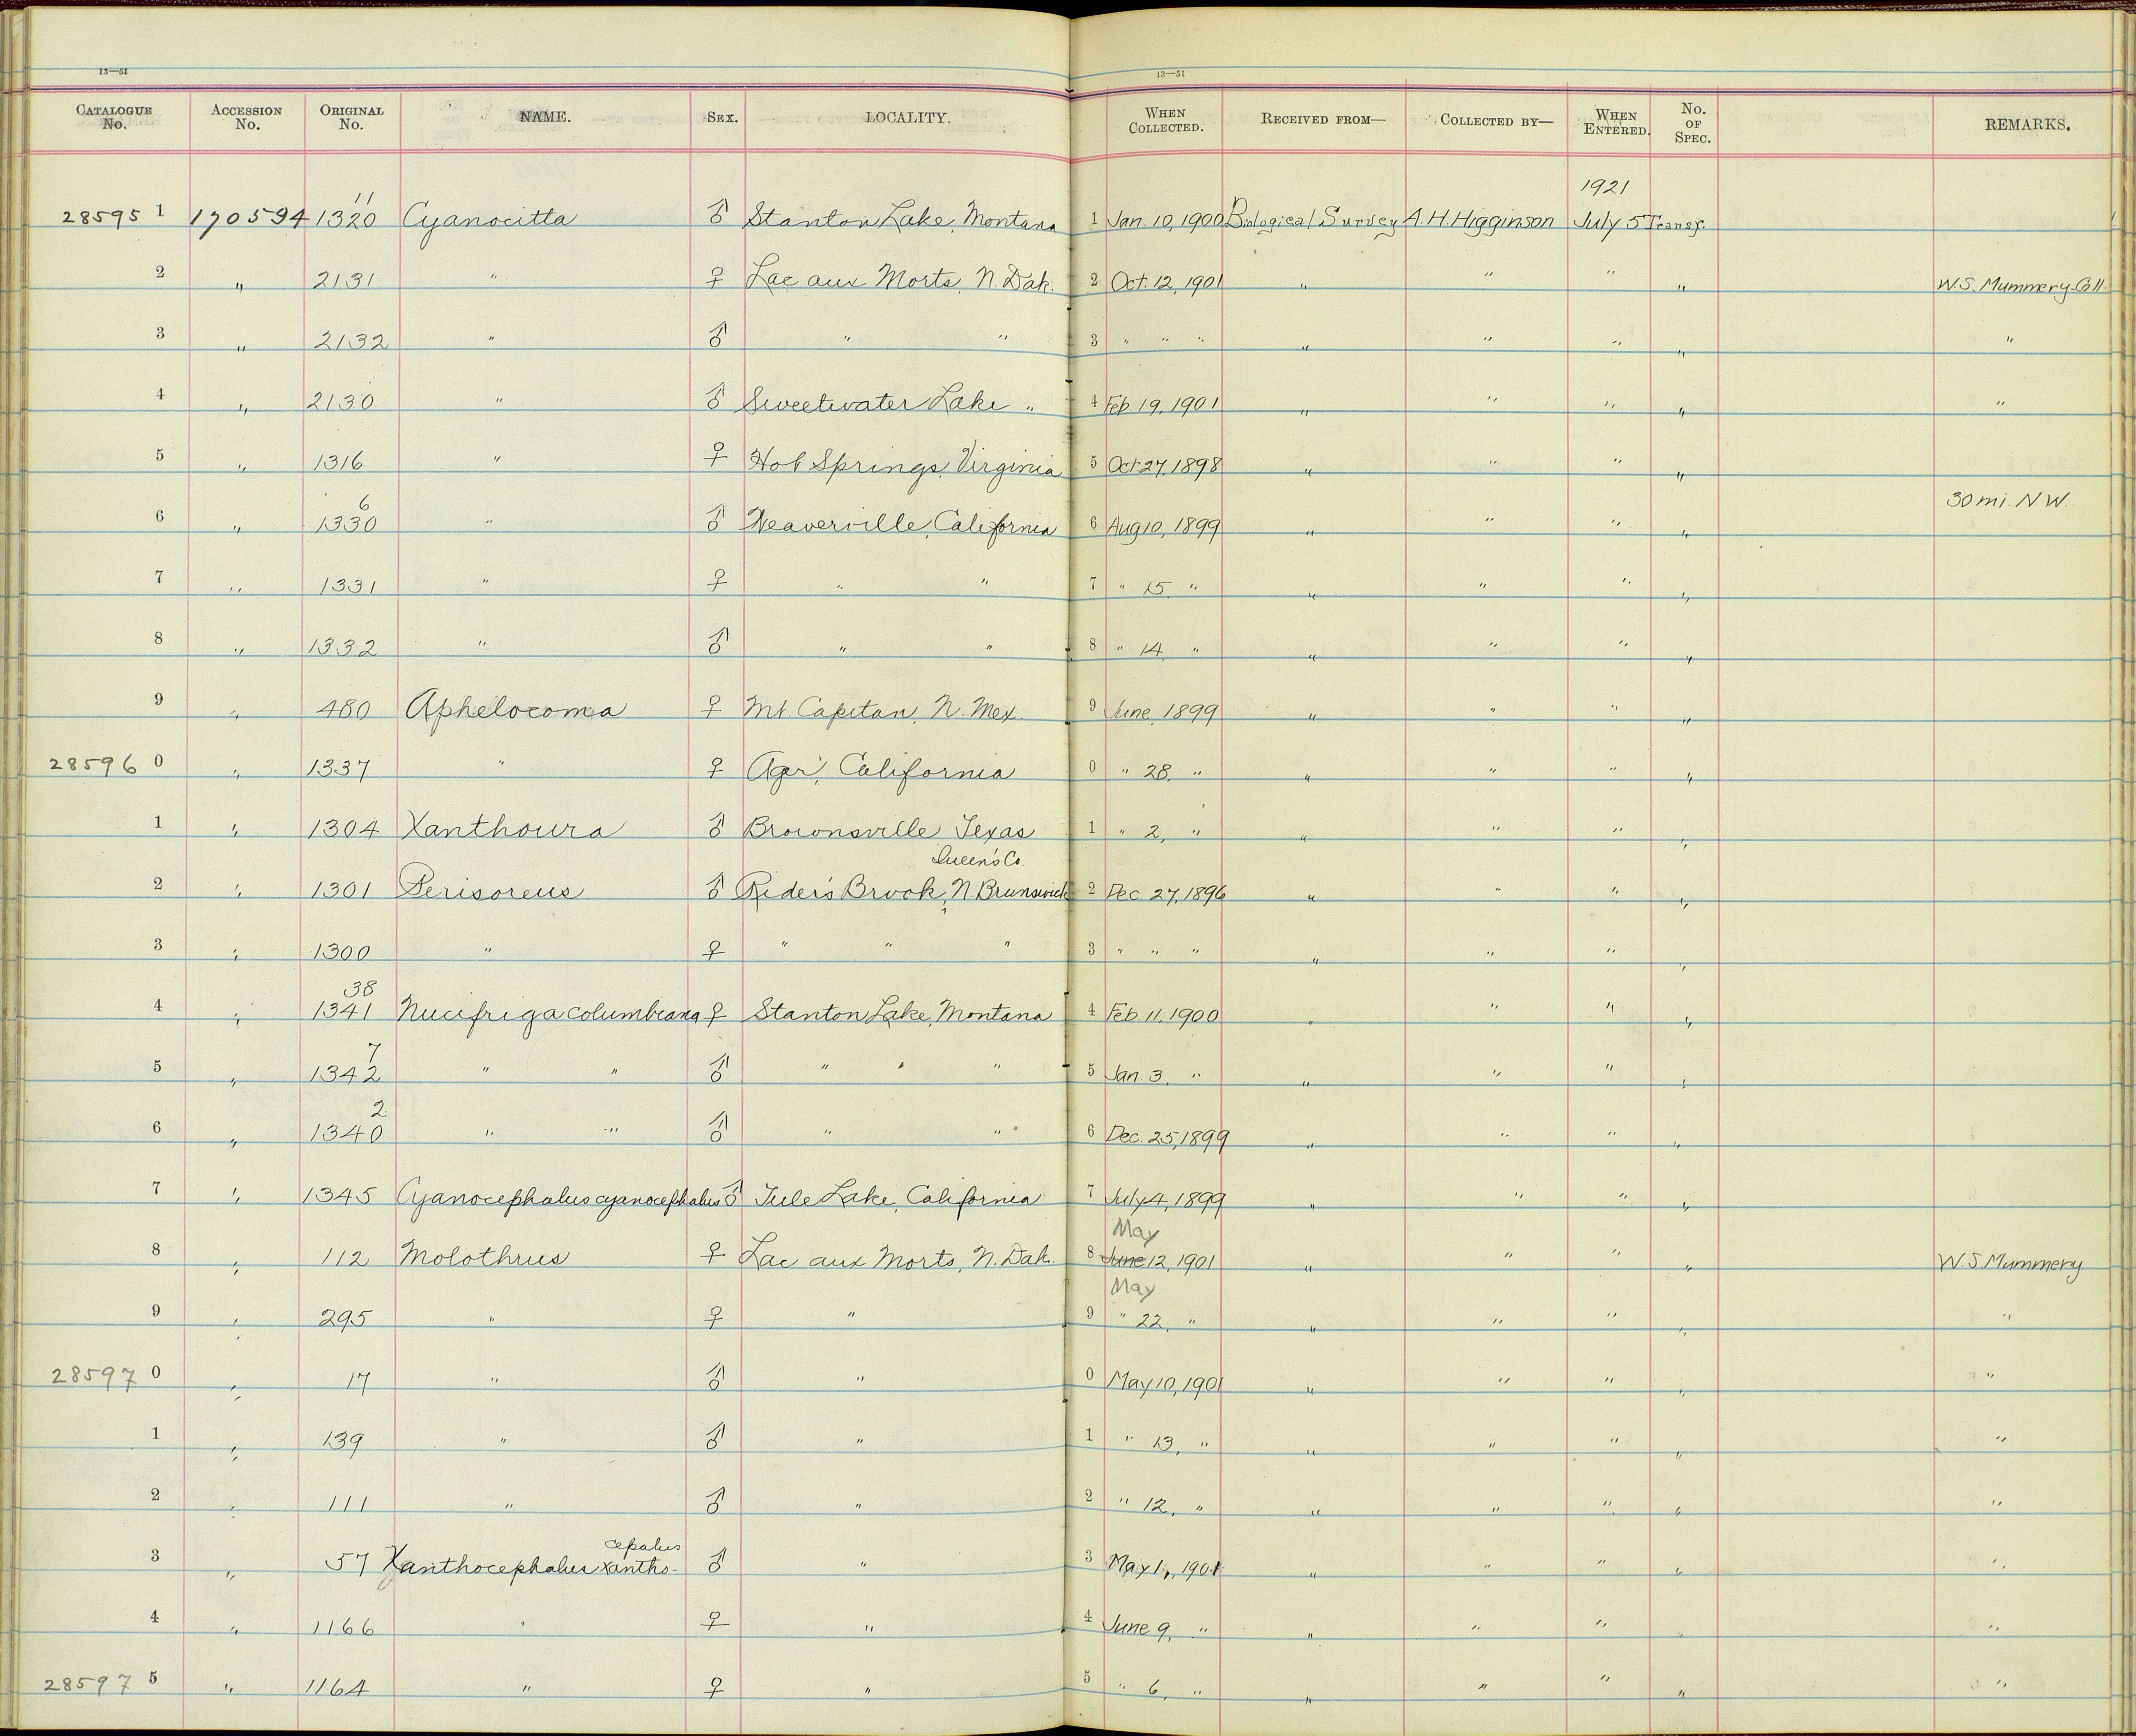 13—51 13—51
CATALOGUE No. ACCESSION No. ORIGINAL No. NAME. SEX. LOCALITY. WHEN COLLECTED. RECEIVED FROM— COLLECTED BY— WHEN ENTERED. No. OF SPEC. REMARKS.
11 1921
28595 1 170594 1320 Cyanocitta ♂ Stanton Lake, Montana 1 Jan. 10, 1900 Biological Survey A.H. Higginson July 5 Transf.
2 " 2131 " ♀ Lac aux Morts, N. Dak. 2 Oct. 12, 1901 " " " " W.S. Mummery Coll.
3 " 2132 " ♂ " " 3 " " " " " " " "
4 " 2130 " ♂ Sweetwater Lake " 4 Feb. 19, 1901 " " " " "
5 " 1316 " ♀ Hot Springs, Virginia 5 Oct. 27, 1898 " " " "
6 30 mi. N W.
6 " 1330 " ♂ Weaverville, California 6 Aug 10, 1899 " " " "
7 " 1331 " ♀ " " 7 " 15 " " " " "
8 " 1332 " ♂ " " 8 " 14 " " " " "
9 " 480 Aphelocoma ♀ Mt. Capitan, N. Mex. 9 June, 1899 " " " "
28596 0 " 1337 " ♀ Ager, California 0 " 28, " " " " "
1 " 1304 Xanthoura ♂ Brownsville Texas 1 " 2, " " " " "
Queen's Co.
2 " 1301 Perisoreus ♂ Rider's Brook, N. Brunswick 2 Dec. 27, 1896 " " " "
3 " 1300 " ♀ " " " 3 " " " " " " "
38
4 " 1341 Nucifriga columbiana ♀ Stanton Lake, Montana 4 Feb. 11, 1900 " " " "
7
5 " 1342 " " ♂ " " " 5 Jan. 3, " " " " "
2
6 " 1340 " " ♂ " " 6 Dec. 25, 1899 " " " "
7 " 1345 Cyanocephalus cyanocephalus ♂ Tule Lake, California 7 July 4, 1899 " " " "
May
8 " 112 Molothrus ♀ Lac aux Morts, N. Dak. 8 June 12, 1901 " " " " W.S. Mummery
May
9 " 295 " ♀ " 9 " 22, " " " " " "
28597 0 " 17 " ♂ " 0 May 10, 1901 " " " " "
1 " 139 " ♂ " 1 " 13, " " " " " "
2 " 111 " ♂ " 2 " 12, " " " " " "
cepalus
3 " 57 Xanthocephalus xantho- ♂ " 3 May 11, 1901 " " " " "
4 " 1166 " ♀ " 4 June 9, " " " " " "
28597 5 " 1164 " ♀ " 5 " 6, " " " " " "